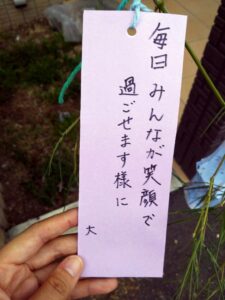 毎日みんなが笑顔で
過ごせます様に
大